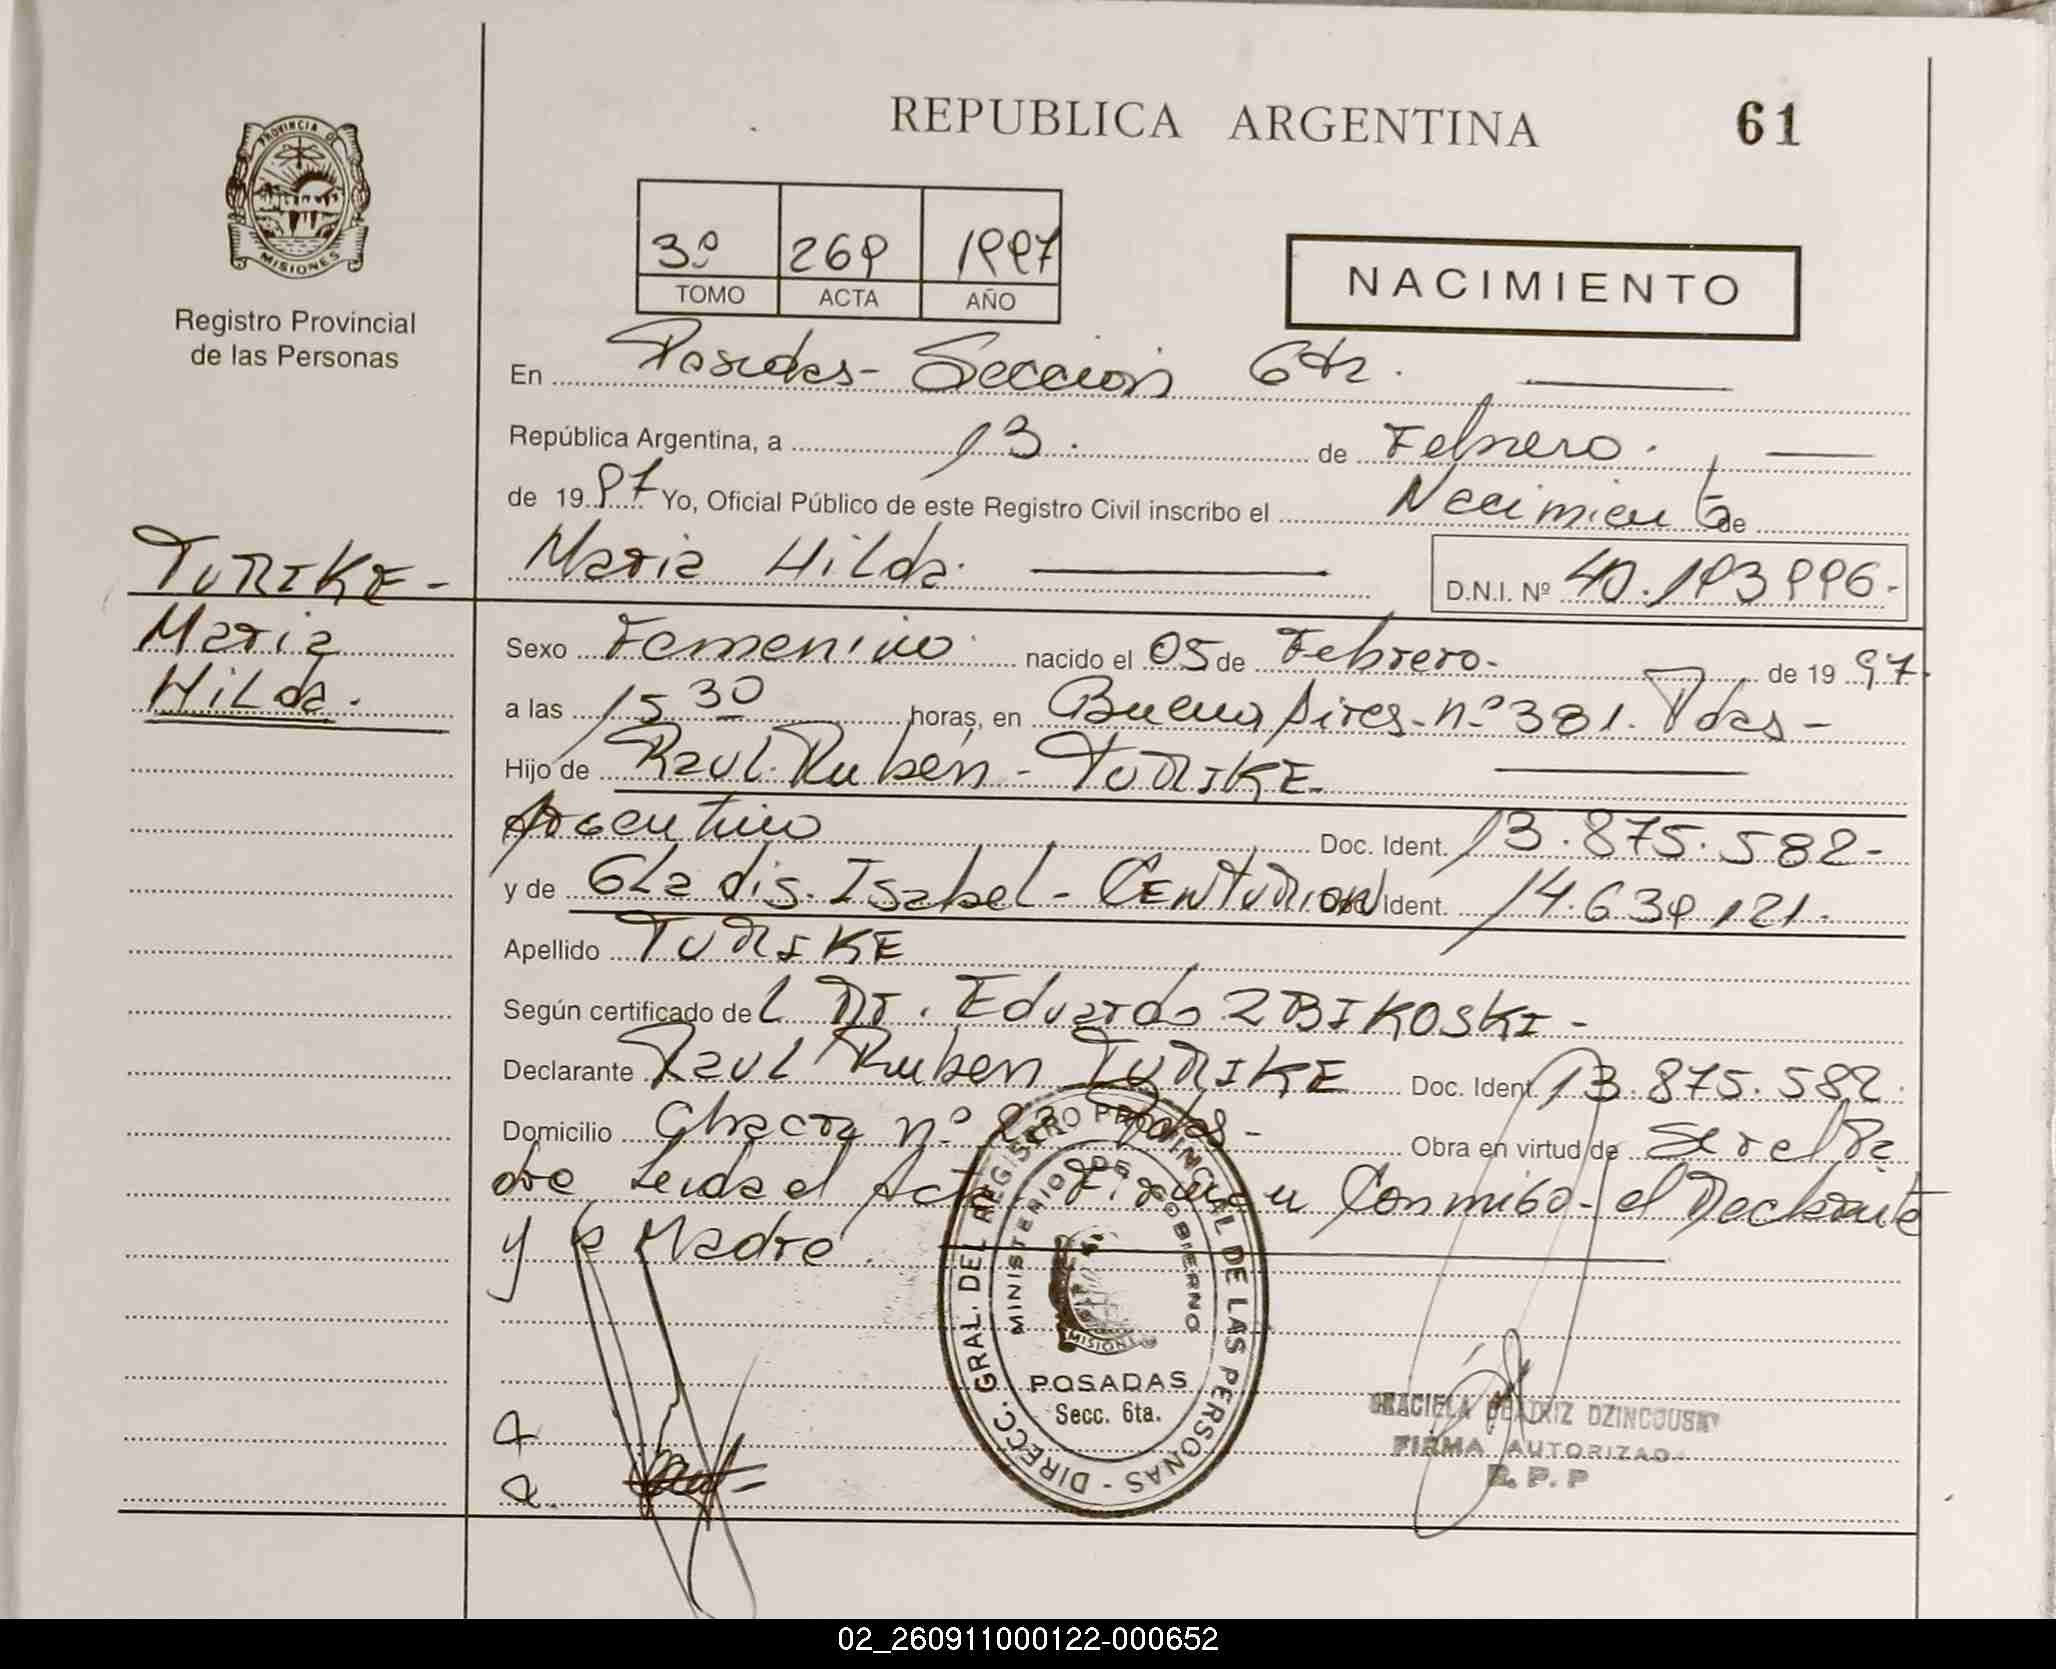 REPUBLICA ARGENTINA
61
PROVINCIA DE
MISIONES
Registro Provincial
de las Personas
3º 269 1997
TOMO ACTA AÑO
NACIMIENTO
En Posadas - Sección 6ta.
República Argentina, a 13. de Febrero.
de 1997 Yo, Oficial Público de este Registro Civil inscribo el Nacimiento de
Maria Hilda.
D.N.I. Nº 40.193996.
TURIKE -
Maria
Hilda.
Sexo Femenino nacido el 05 de Febrero. de 1997.
a las 15 30 horas, en Buenos Aires - nº 381. Pdas -
Hijo de Raul Rubén - TURIKE.
Argentino Doc. Ident. 13.875.582-
y de Gladis Isabel - CENTURION Ident. 14.639.121.
Apellido TURIKE
Según certificado del Dr. Eduardo ZBIKOSKI -
Declarante Raul Ruben TURIKE Doc. Ident. 13.875.582.
Domicilio Chacra nº Pdas - Obra en virtud de ser el Pa
dre Leida el Acta Firman Conmigo - el Declarante
y la Madre
DIRECC. GRAL. DEL REGISTRO PROVINCIAL DE LAS PERSONAS -
MINISTERIO DE GOBIERNO
MISIONES
POSADAS
Secc. 6ta.
GRACIELA BEATRIZ DZINCOUSKY
FIRMA AUTORIZADA
R. P. P
02_260911000122-000652